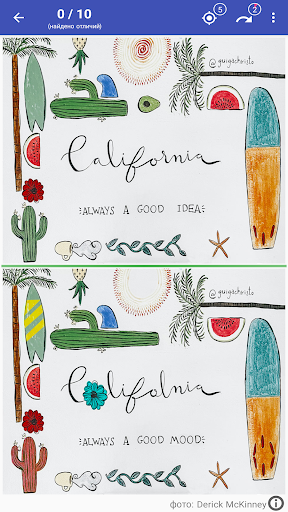 0 / 10
(найдено отличий)
5
2
@guigachristo
California
ALWAYS A GOOD IDEA
@guigachristo
Califolnia
ALWAYS A GOOD MOOD
фото: Derick McKinney